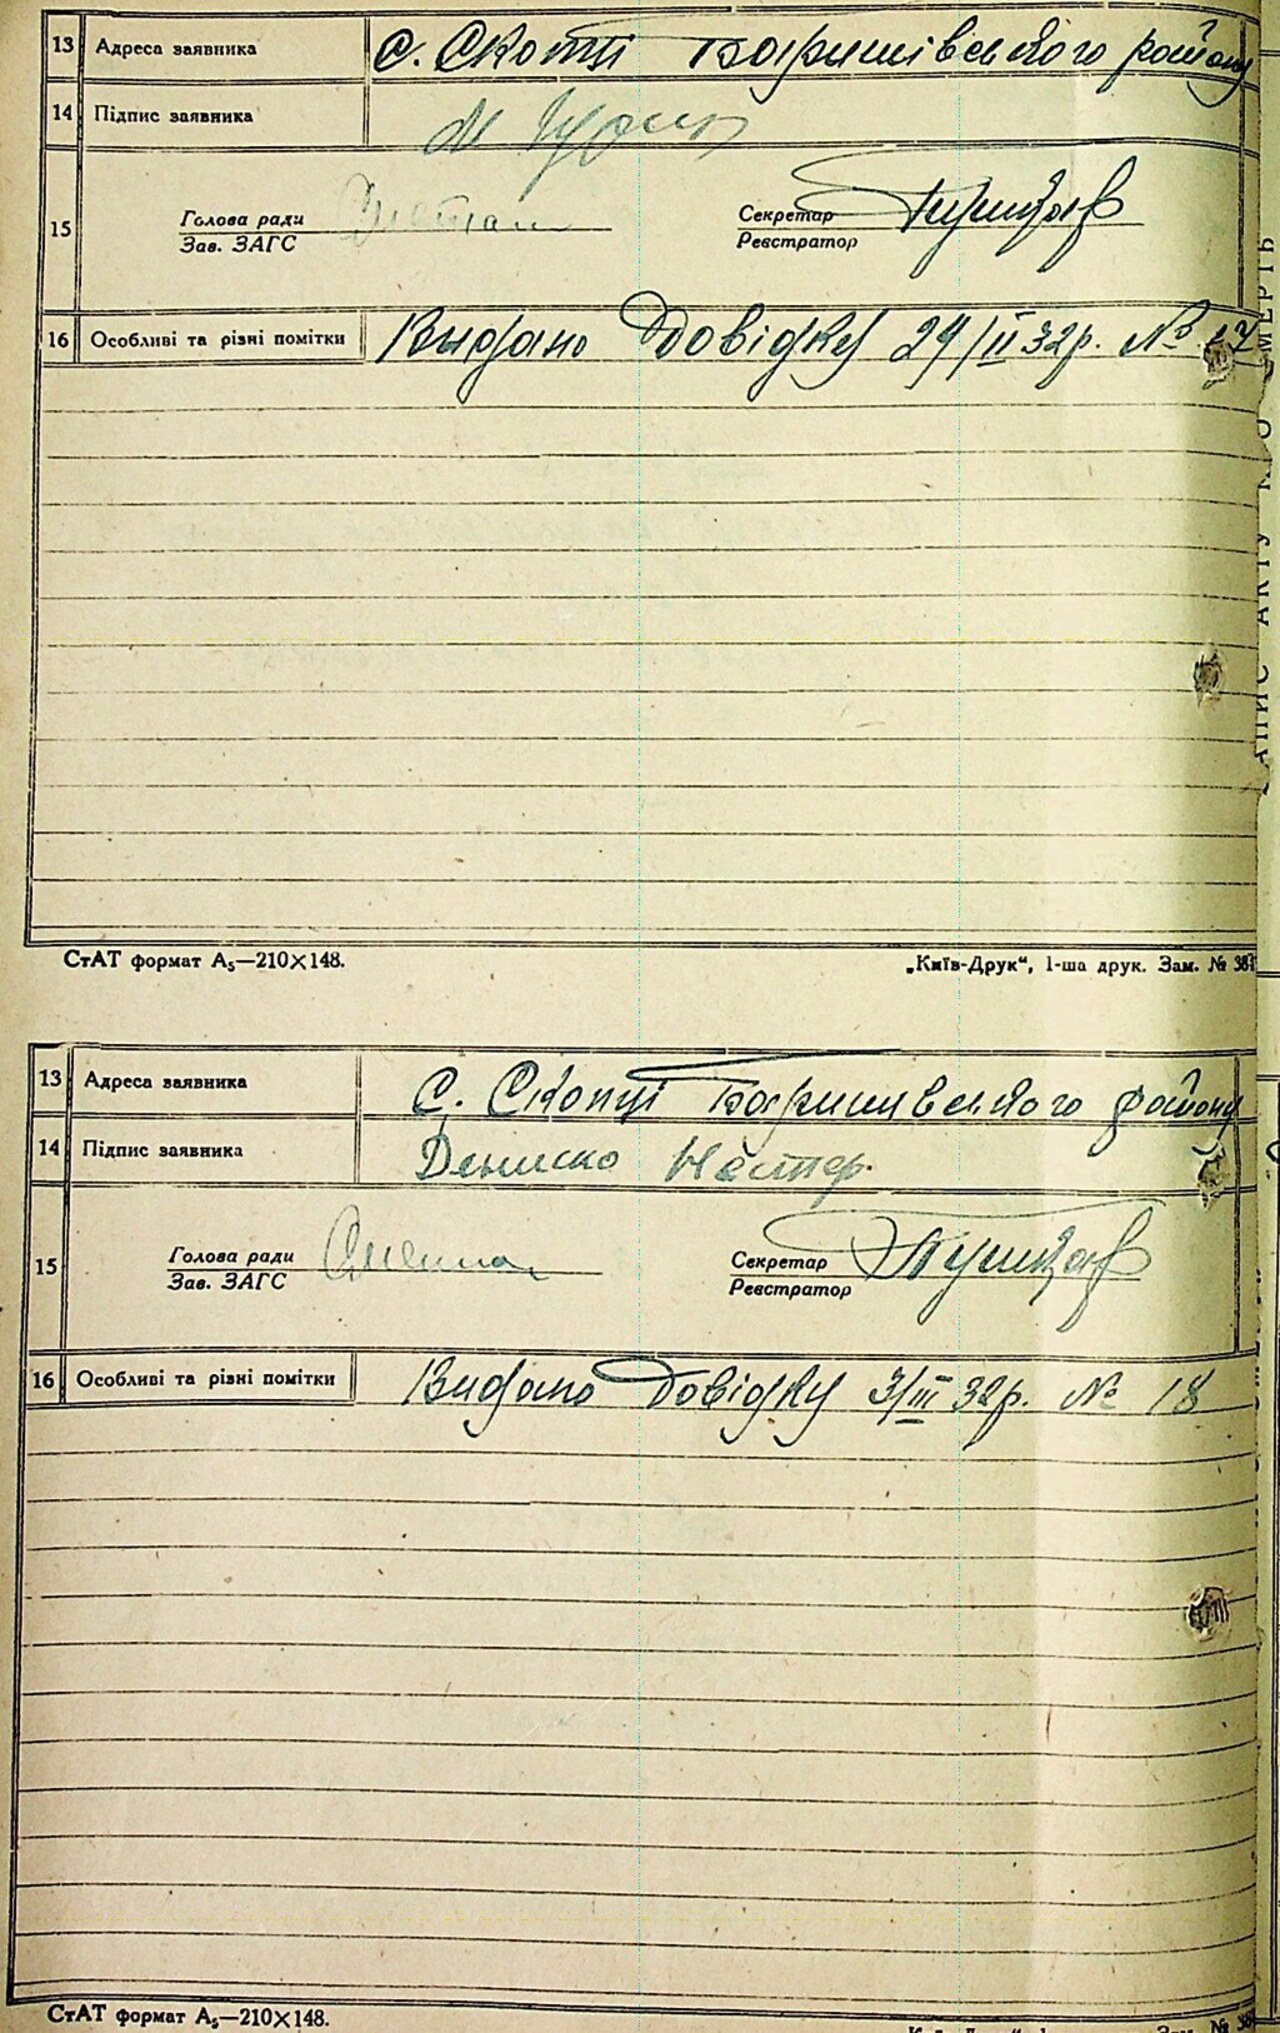 13 Адреса заявника С. Скопці Баришівського району
14 Підпис заявника
15 Голова ради
Зав. ЗАГС
Секретар
Реєстратор
16 Особливі та різні помітки Видано Довідку 29/II 32р. №
СтАТ формат А₅—210×148.
„Київ-Друк“, 1-ша друк. Зам. №
13 Адреса заявника С. Скопці Баришівського району
14 Підпис заявника Дениско Нестер.
15 Голова ради
Зав. ЗАГС
Секретар
Реєстратор
16 Особливі та різні помітки Видано Довідку 3/III 32р. № 18
СтАТ формат А₅—210×148.